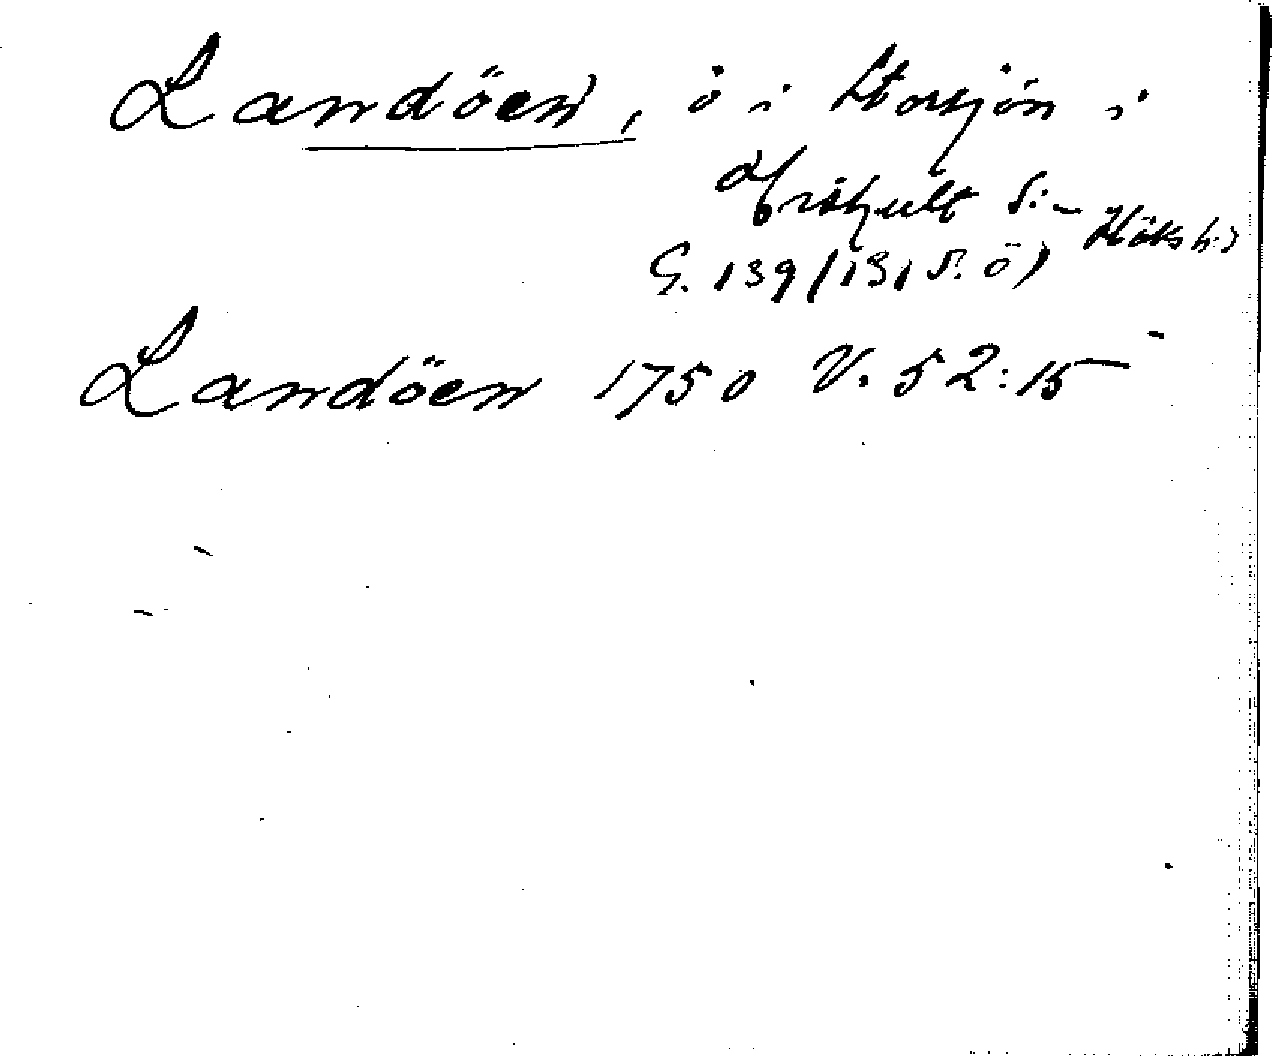 Landöen, ö i Storsjön i
Örkhult S:n Höks h:d
G. 139 (131 S. Ö)
Landöen 1750 V. 52:15